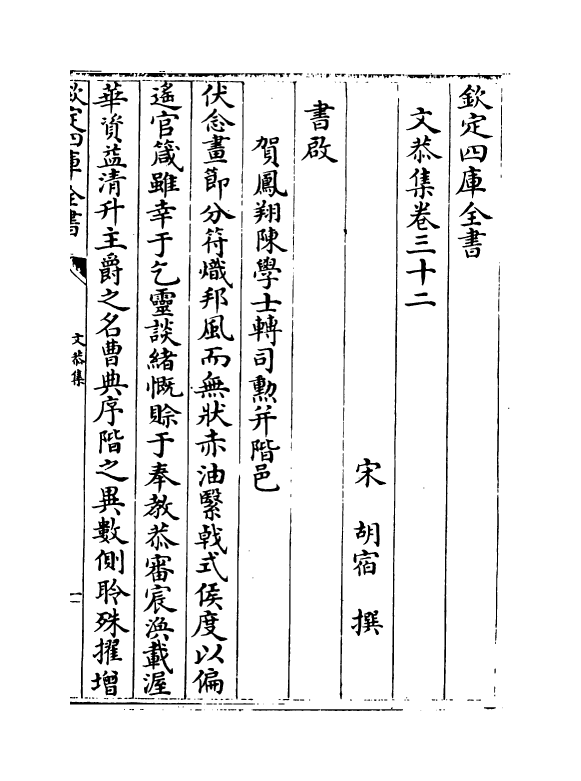 欽定四庫全書
文恭集卷三十二
宋 胡宿 撰
書啟
賀鳳翔陳學士轉司勲并階邑
伏念畫節分符熾邦風而無狀赤油繄戟式侯度以偏
遙官箴雖幸于乞靈談緒慨賒于奉教恭審宸渙載渥
華資益清升主爵之名曹典序階之異數側聆殊擢增
欽定四庫全書
文恭集
一